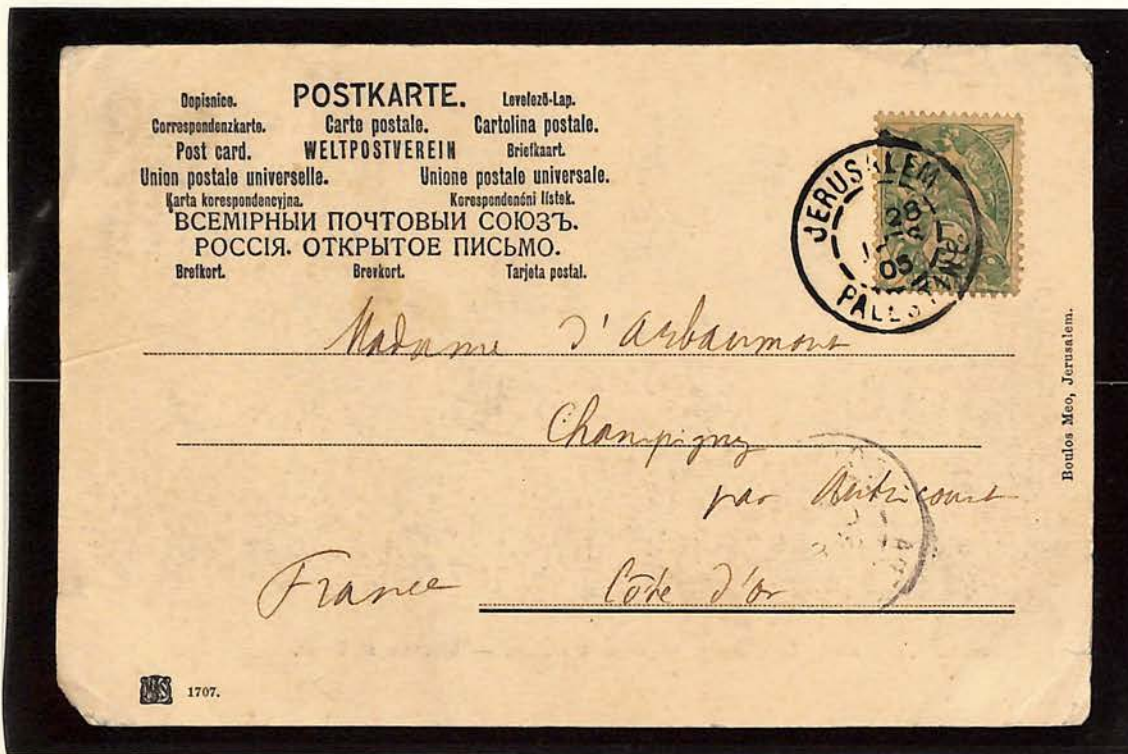 Dopisnice. POSTKARTE. Levelező-Lap.
Correspondenzkarte. Carte postale. Cartolina postale.
Post card. WELTPOSTVEREIN Briefkaart.
Union postale universelle. Unione postale universale.
Karta korespondencyjna. Korespondenční lístek.
ВСЕМІРНЫИ ПОЧТОВЫИ СОЮЗЪ.
РОССІЯ. ОТКРЫТОЕ ПИСЬМО.
Brefkort. Brevkort. Tarjeta postal.
JERUSALEM
28
05
PALESTINE
Madame d'Arbaumont
Champigny
par Autricourt
France Côte d'Or
Boulos Meo, Jerusalem.
1707.